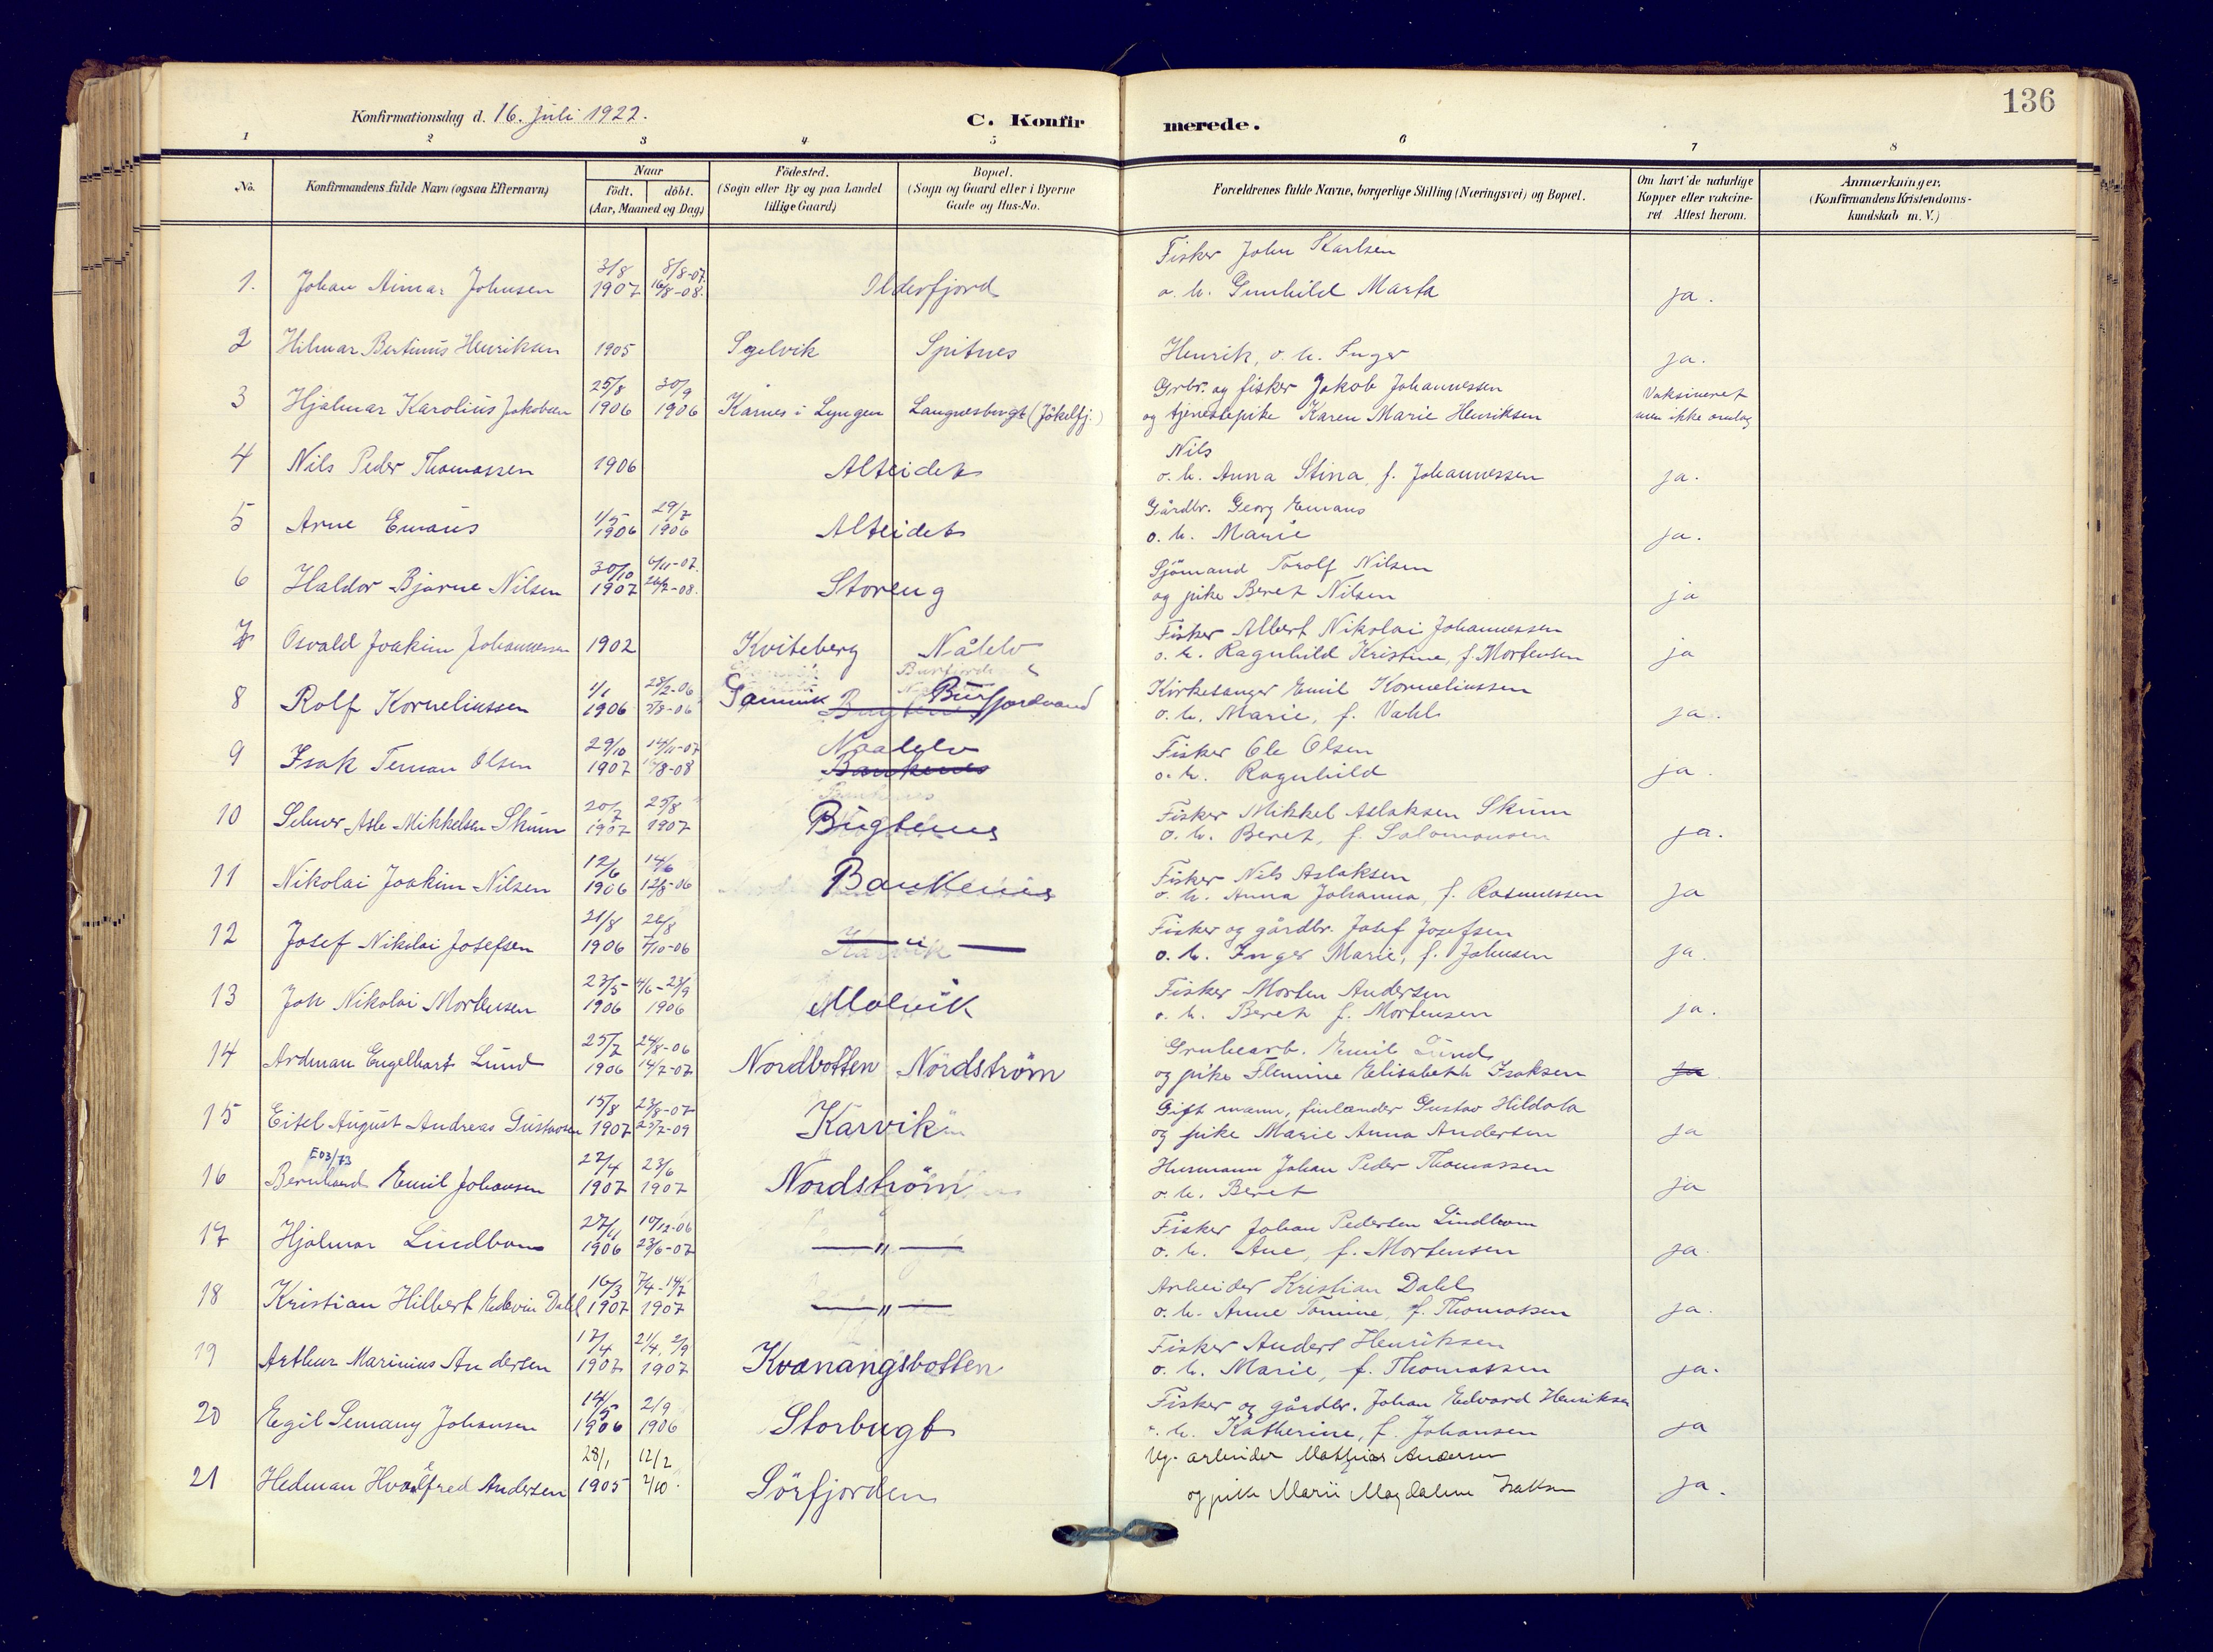 136
Konfirmationsdag d. 16. Juli 1922.
C. Konfirmerede.
1 2 3 4 5 6 7 8
No. Konfirmandens fulde Navn (ogsaa Efternavn) Naar født. døbt. (Aar, Maaned og Dag) Fødested. (Sogn eller By og paa Landet tillige Gaard) Bopæl. (Sogn og Gaard eller i Byerne Gade og Hus-No. Forældrenes fulde Navne, borgerlige Stilling (Næringsvei) og Bopæl. Om havt de naturlige Kopper eller vakcineret Attest herom. Anmærkninger. (Konfirmandens Kristendomskundskab m. V.)
Fisker John Karlsen
1. Johan Aimar Johnsen 3/8 1907 8/8-07. 16/8-08. Olderfjord o. h. Gunhild Marfa ja.
2 Hilmar Bertinus Henriksen 1905 Sgelvik Spitnes Henrik, o. h. Inger ja.
Grbr. og fisker Jakob Johannessen Vaksineret
3 Hjalmar Karolius Jakobsen 25/8 1906 30/9 1906 Karnes i Lyngen Langnesbugt (Jökelfj.) og tjenestepike Karen Marie Henriksen men ikke
Nils
4 Nils Peder Thomassen 1906 Alteidet o. h. Anna Stina, f. Johannessen ja.
Gårdbr. Georg Emaus
5 Arne Emaus 1/5 1906 29/7 1906 Alteidet o. h. Marie ja.
Sjömand Torolf Nilsen
6 Haldor Bjarne Nilsen 30/10 1907 6/11-07. 26/7-08. Storeng og pike Beret Nilsen ja
Fisker Albert Nikolai Johannessen
7 Osvald Joakim Johannessen 1902 Kviteberg Nålelv o. h. Ragnhild Kristine, f. Mortensen ja
Kirkesanger Emil Korneliussen
8 Rolf Korneliussen 1/1 1906 28/2-06 5/8-06 Gamvik Burfjordvand o. h. Marie, f. Vahl ja.
Fisker Ole Olsen
9 Isak Teman Olsen 29/10 1907 14/11-07 16/8-08 Naalelv Baukenes o. h. Ragnhild ja.
Fisker Mikkel Aslaksen Skum
10 Selmer Asle Mikkelsen Skum 20/7 1907 25/8 1907 Bugtenes o. h. Beret, f. Salomonsen ja.
Fisker Nils Aslaksen
11 Nikolai Joakim Nilsen 12/6 1906 14/6 12/8-06 Baukenes o. h. Anna Johanna, f. Rasmussen ja
Fisker og gårdbr. Josef Josefsen
12 Josef Nikolai Josefsen 21/8 1906 26/8 7/10-06 — " — o. h. Inger Marie, f. Johnsen ja.
Fisker Morten Andersen
13 Joh Nikolai Mortensen 23/5 1906 4/6-23/9 1906 Molvik o. h. Beret f. Mortensen ja.
Grubearb. Emil Lund
14 Ardman Engelhart Lund 25/7 1906 24/8-06 14/7-07 Nordbotten Nordström og pike Flemine Elisabeth Isaksen ja
Gift mann, finlænder Gustav Hildala
15 Eitel August Andreas Gustavsen 15/8 1907 23/8-07 25/7-09 Karvik og pike Marie Anna Andersen ja
E03/73
Husmann Johan Peder Thomassen
16 Bernhard Emil Johansen 27/4 1907 23/6 1907 Nordström o. h. Beret ja
Fisker Johan Pedersen Lindbom
17 Hjalmar Lindbom 27/11 1906 10/12-06 23/6-07 — " — o. h. Ane, f. Mortensen ja
Arbeider Kristian Dahl
18 Kristian Hilbert Edevin Dahl 16/3 1907 7/4-14/7 1907 — " — o. h. Anne Tomine, f. Thomassen ja.
Fisker Anders Henriksen
19 Arthur Marinius Andersen 17/4 1907 21/4, 2/9 1907 Kvænangsbotten o. h. Marie, f. Thomassen ja.
Fisker og gårdbr. Johan Edvard Henriksen
20 Egil Semany Johansen 14/5 1906 2/9 1906 Storbugt o. h. Katherine, f. Johansen ja
Vg. arbeider Mathias Andersen
21 Hedman Hvalfred Andersen 28/1 1905 12/2 2/10. Sörfjorden og pike Marie Magdalene Isaksen ja.